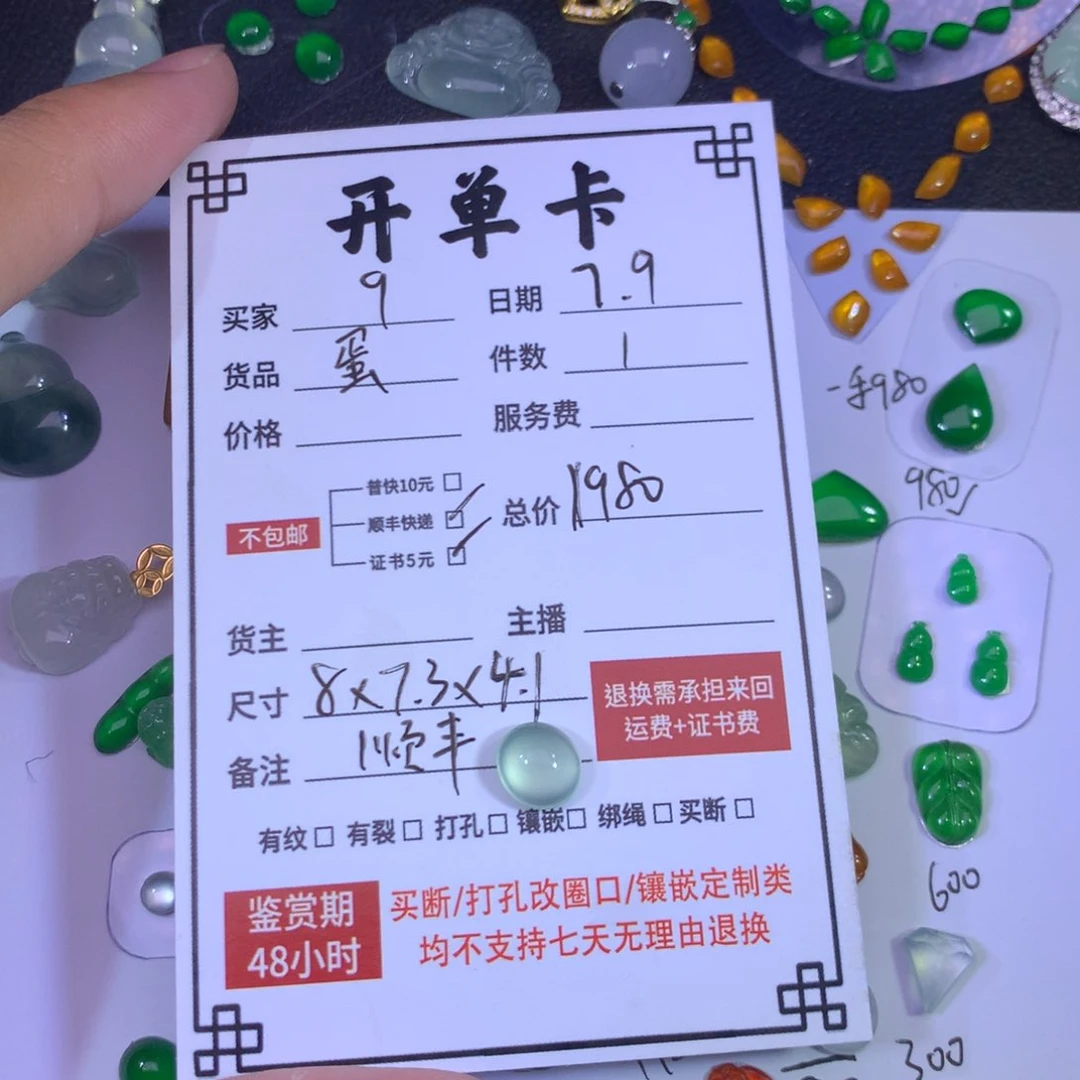 开单卡
买家 9 日期 7.9
货品 蛋 件数 1
价格 服务费
普快10元
不包邮 顺丰快递 总价 1980
证书5元
货主 主播
尺寸 8x7.3x4.1
退换需承担来回
运费+证书费
备注 顺丰
有纹 有裂 打孔 镶嵌 绑绳 买断
鉴赏期
48小时
买断/打孔改圈口/镶嵌定制类
均不支持七天无理由退换
一手980
980
600
300